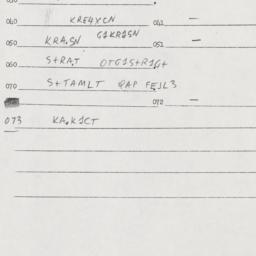 040 KRE4XCN 041 —
G1KR1SN
050 KRA.SN 051 —
060 S+RA.T OTG1S+R1G+
070 S+TAMLT QAP FEJL3
072 —
073 KA.K1CT